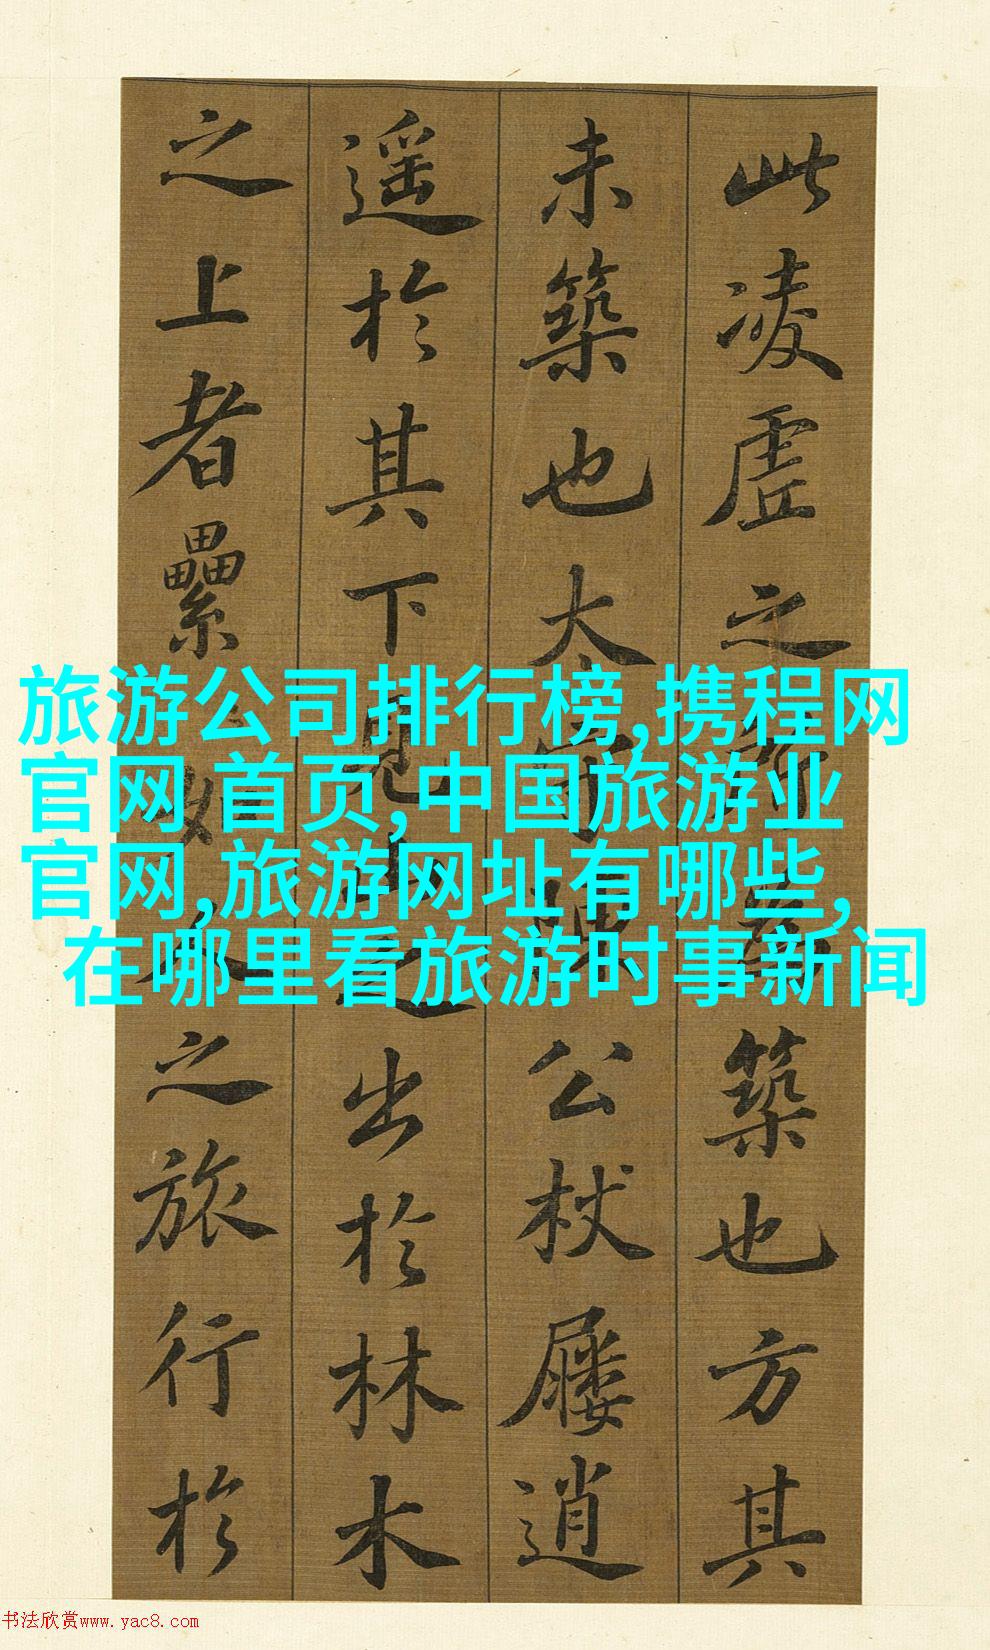 此凌虚之所為築也方其
未築也太守陳公杖屨逍
遥於其下見山之出於林木
之上者纍如人之旅行於
旅游公司排行榜,携程网
官网 首页,中国旅游业
官网,旅游网址有哪些,
在哪里看旅游时事新闻
书法欣赏www.yac8.com